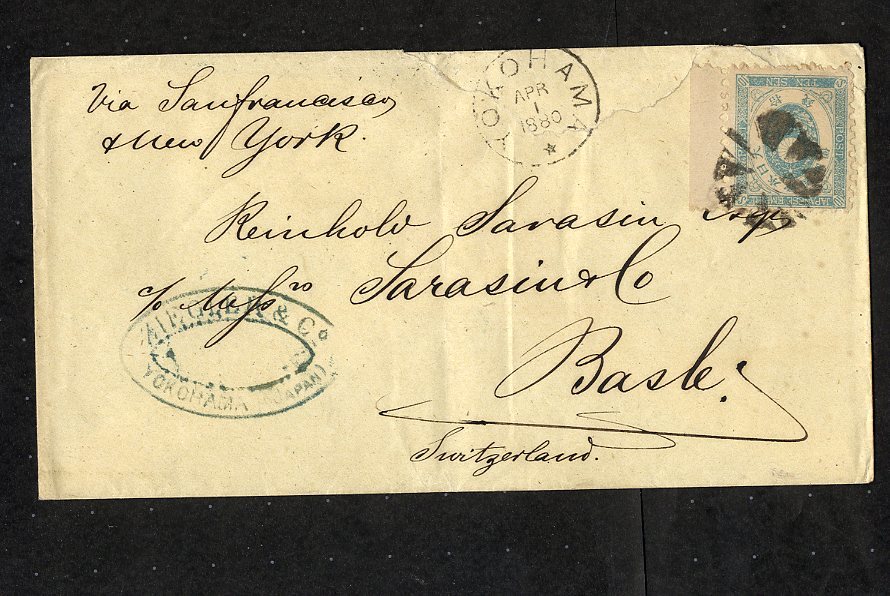 Via Sanfrancisco
& New York.
YOKOHAMA
APR
1
1880
TEN SEN
JAPANESE EMP
Reinhold Sarasin Esqr
c/o Messrs Sarasin & Co
Basle
Switzerland.
ZIEGLER & Co
YOKOHAMA (JAPAN)